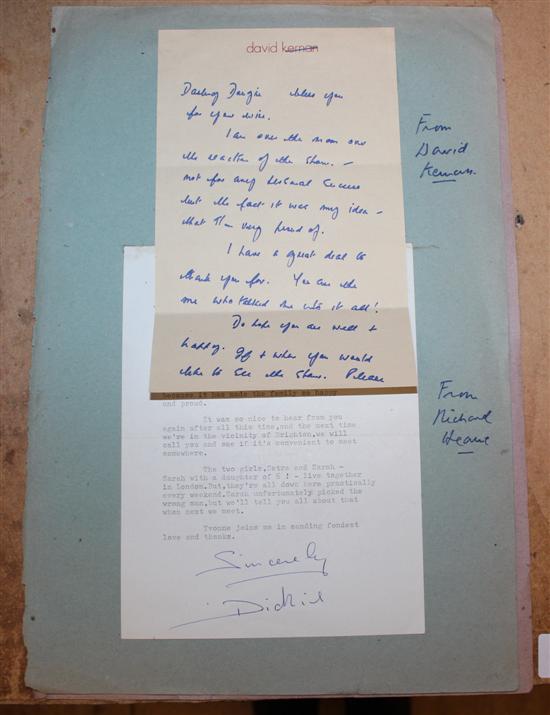 david kernan
Darling Dougie bless you
for your wire.
I am over the moon over
the reaction of the show. -
not for any personal success
but the fact it was my idea -
that I'm very proud of.
I have a great deal to
thank you for. You are the
one who talked me into it all!
Do hope you are well +
happy. If + when you would
like to see the show. Please
From
David
Kernan.
because it has made the family so happy
and proud.
It was so nice to hear from you
again after all this time, and the next time
we're in the vicinity of Brighton,we will
call you and see if it's convenient to meet
somewhere.
The two girls, Cetra and Sarah -
Sarah with a daughter of 6 ! - live together
in London.But,they're all down here practically
every weekend.Sarah unfortunately picked the
wrong man,but we'll tell you all about that
when next we meet.
Yvonne joins me in sending fondest
love and thanks.
Sincerely
Dickie
From
Richard
Hearne